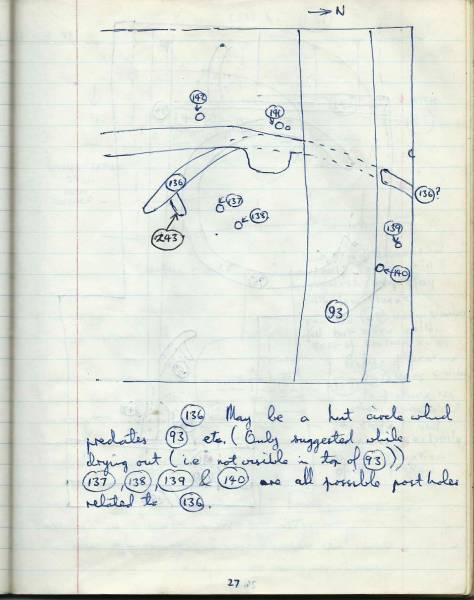 → N
142
141
136
136?
137
138
139
243
140
93
136 May be a hut circle which
predates 93 etc. (Only suggested while
drying out (i.e. not visible in top of 93))
137, 138, 139 & 140 are all possible post holes
related to 136.
27